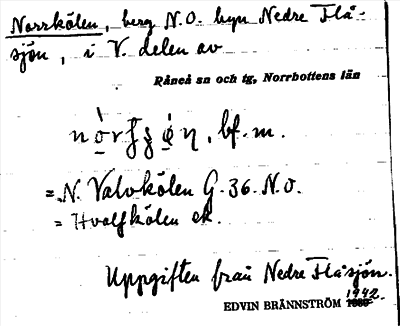 Norrkölen, berg N.O. byn Nedre Flå-
sjön, i V. delen av
Råneå sn och tg, Norrbottens län
bf. m.
= N. Valvkölen G. 36. N.O.
= Hvalfkölen ek.
Uppgiften från Nedre Flåsjön.
1942.
EDVIN BRÄNNSTRÖM